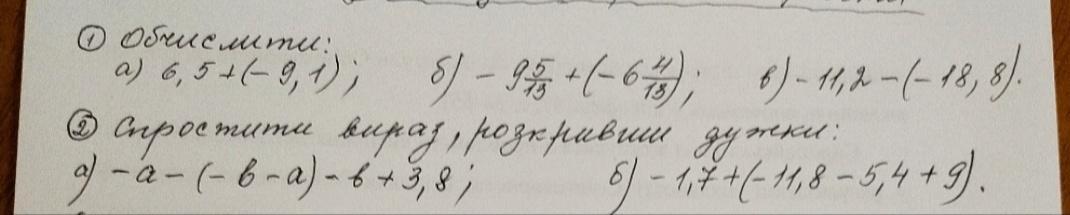 ① Обчислити:
а) 6,5+(-9,1); б) -9 5/13 + (-6 4/13); в) -11,2-(-18,8).
② Спростити вираз, розкривши дужки:
а) -а-(-в-а)-в+3,8; б) -1,7+(-11,8-5,4+9).